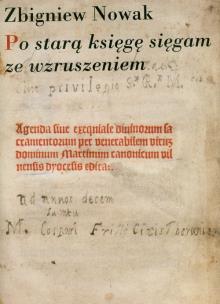 Zbigniew Nowak
Po starą księgę sięgam
ze wzruszeniem
Cum privilegio S. R. M.
Agenda siue exequiale diuinorum sa
cramentorum per venerabilem virum
dominum Martinum canonicum vil
nensis dyocesis edita:.
ad annos decem
M.